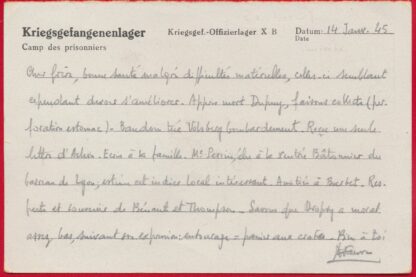 Kriegsgefangenenlager
Camp des prisonniers
Kriegsgef.-Offizierlager X B
Datum: 14 Janv. 45
Date
bonne santé malgré difficultés matérielles, celles-ci semblant
cependant devoir s'améliorer. Appris mort Dupuy, faisons collecte (per-
foration estomac). Baudon tué bombardement. Reçu une seule
lettre d'. Ecris à la famille. Me Perrin, élu à la rentrée Bâtonnier du
barreau de Lyon, estim cet indice local intéressant. Amitiés à . Res-
pects et souvenir de Bénault et Thompson. Savons que a moral
assez bas, suivant son expression: entourage = panier aux crabes. Bien à toi